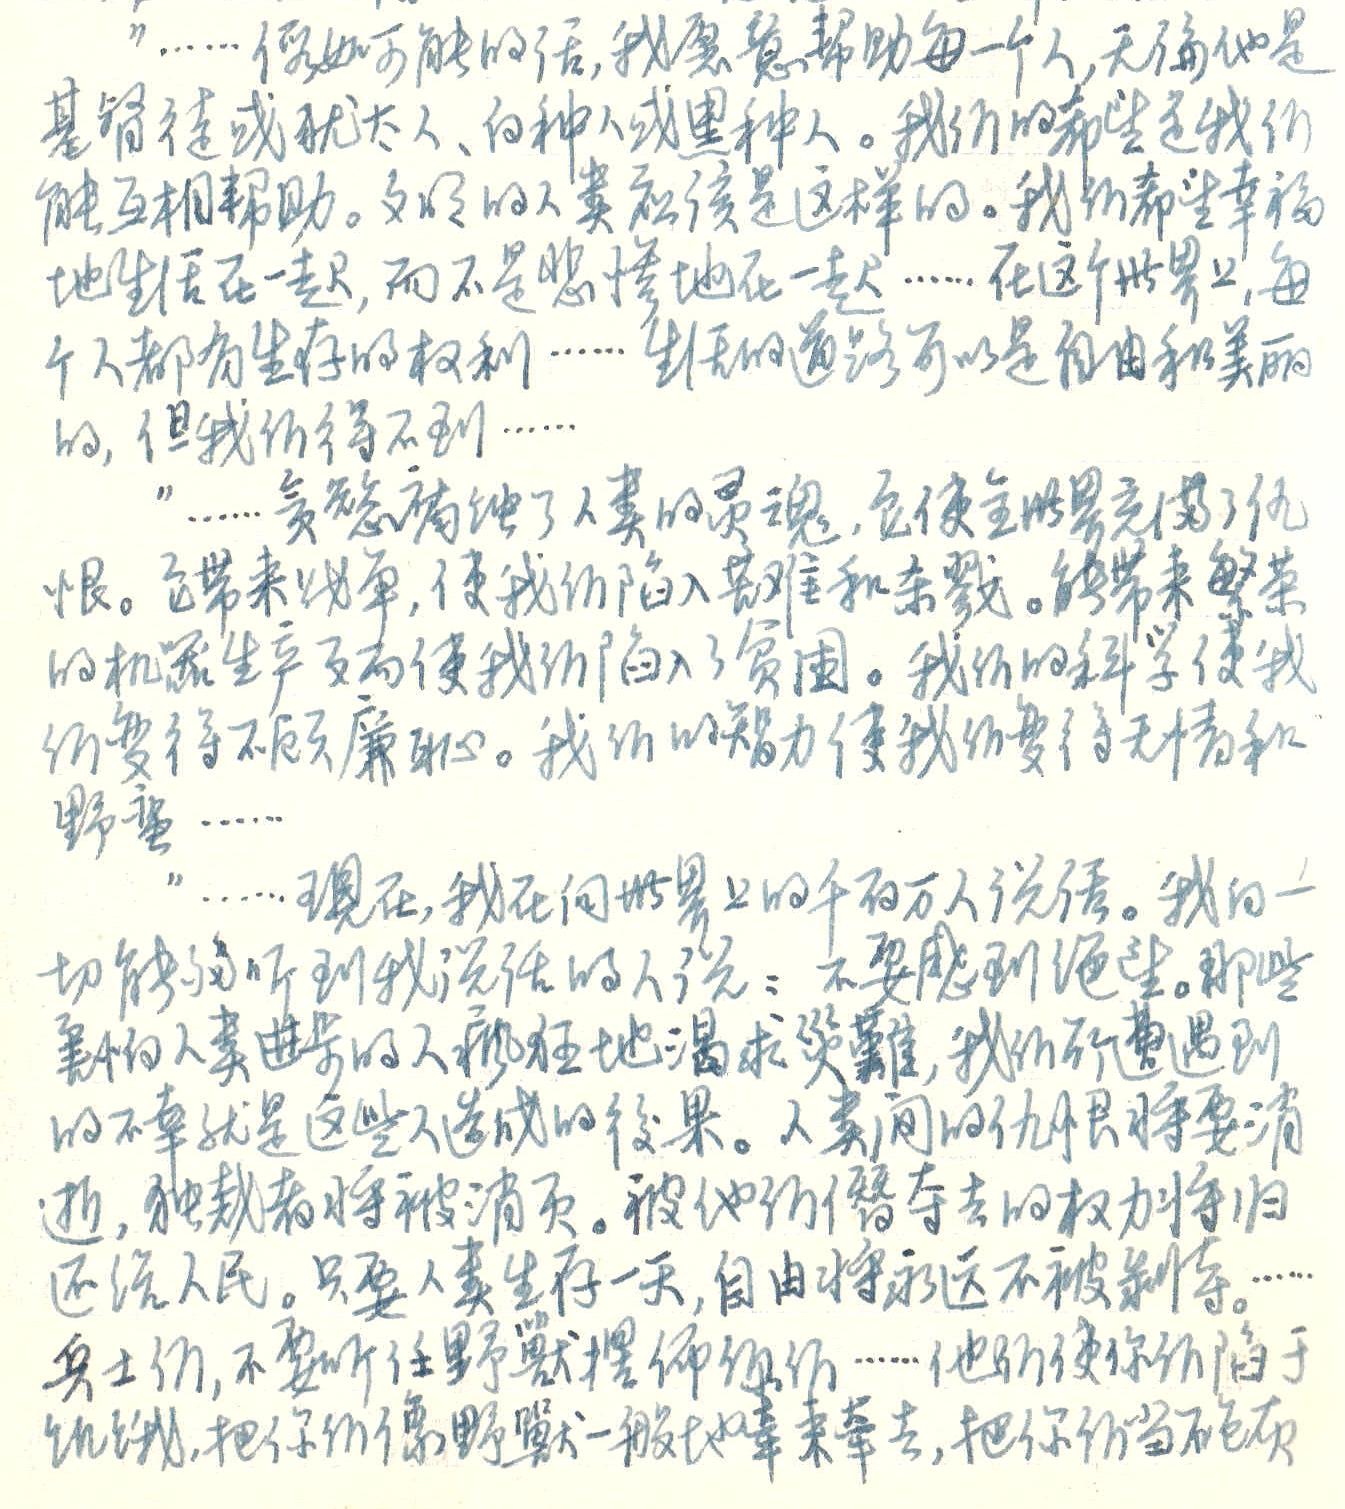 "……假如可能的话,我愿意帮助每一个人,无论他是
基督徒或犹太人、白种人或黑种人。我们的希望是我们
能互相帮助。文明的人类应该是这样的。我们希望幸福
地生活在一起,而不是悲惨地在一起……在这个世界上,每
个人都有生存的权利……生活的道路可以是自由和美丽
的,但我们得不到……
"……贪慾腐蚀了人类的灵魂,它使全世界充满了仇
恨。它带来战争,使我们陷入苦难和杀戮。能带来繁荣
的机器生产反而使我们陷入了贫困。我们的科学使我
们变得不顾廉耻。我们的智力使我们变得无情和
野蛮……
"……现在,我在向世界上的千百万人说话。我向一
切能够听到我说话的人说:不要感到绝望。那些
害怕人类进步的人疯狂地渴求災難,我们所遭遇到
的不幸就是这些人造成的後果。人类间的仇恨将要消
逝,独裁者将被消灭。被他们僭夺去的权力将归
还给人民。只要人类生存一天,自由将永远不被剥夺。……
兵士们,不要听任野獸摆佈你们……他们使你们陷于
饥饿,把你们像野獸一般地牵来牵去,把你们当不包